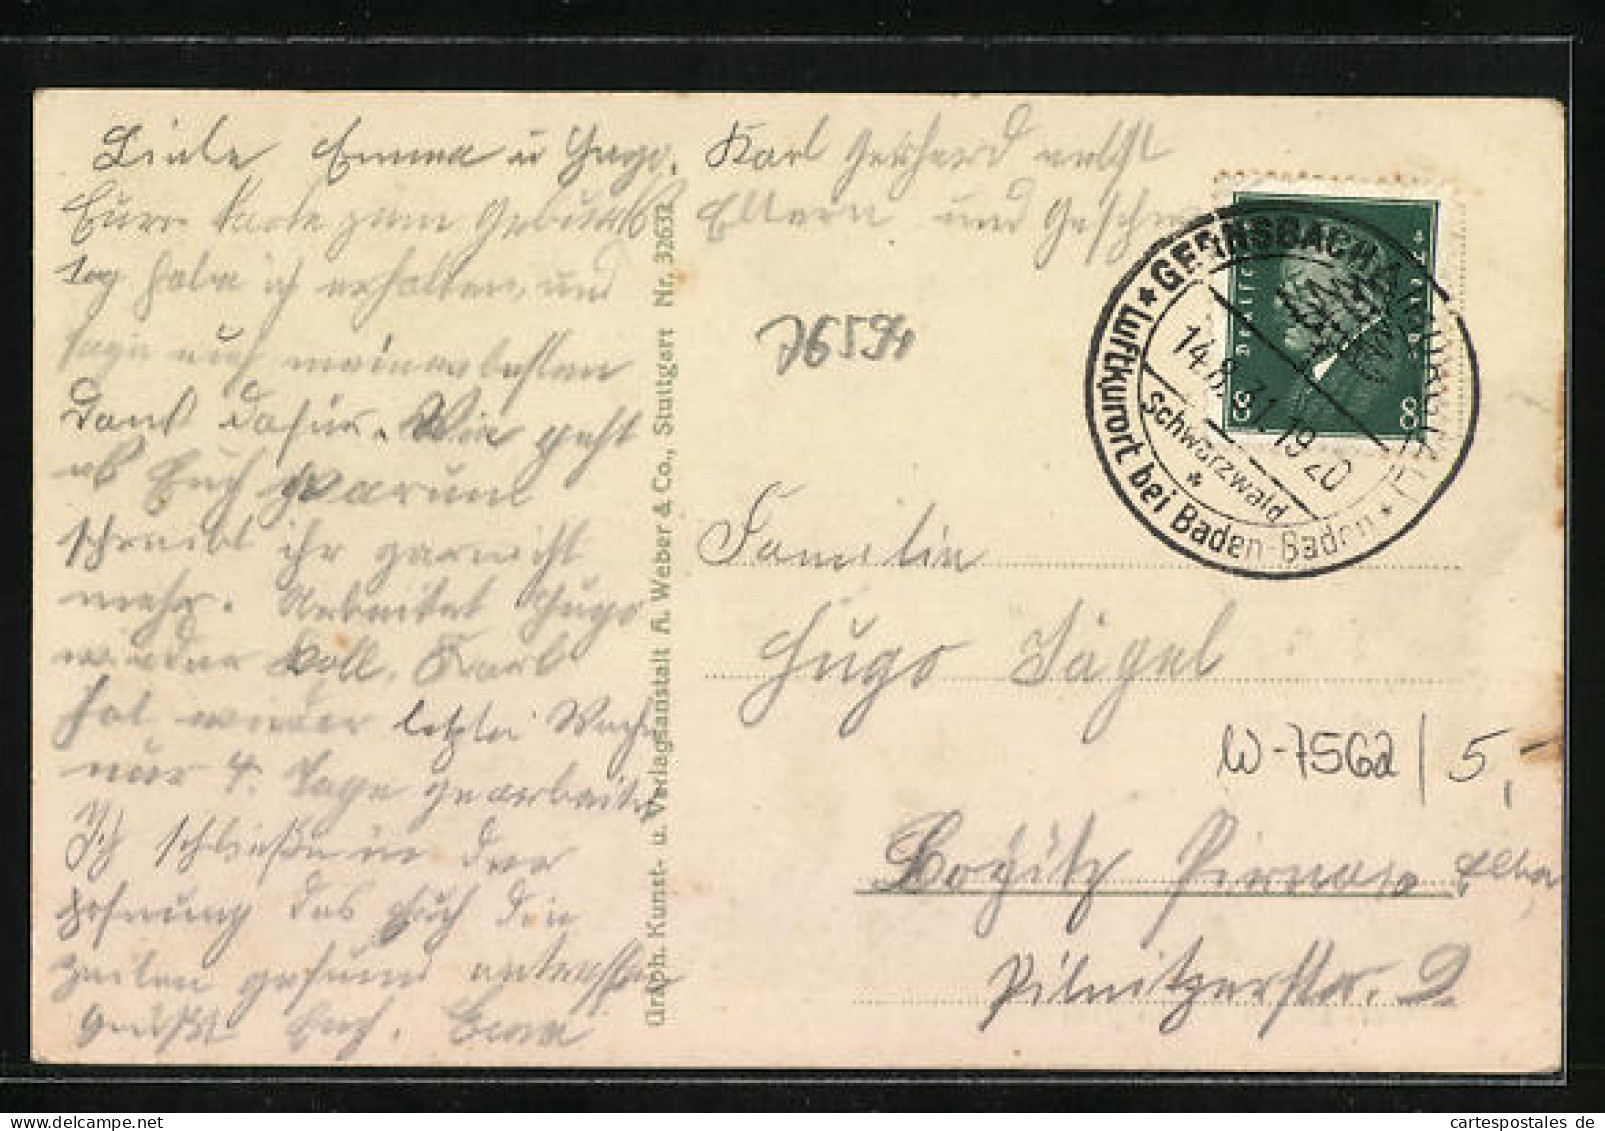 Liebe Emma u Hugo.
Eure Karte zum Geburts
tag habe ich erhalten, und
sage euch meinen besten
Dank dafür. Wie geht
es Euch warum
schreibt ihr garnicht
mehr. Arbeitet Hugo
wieder voll. Karl
hat wieder letzte Woche
nur 4. Tage gearbeitet
Ich schließe in der
Hofnung das Euch die
zeilen gesund antreffen
Grüßt Euch.
Karl Gerhard nebst
Eltern und Geschw
Graph. Kunst- u. Verlagsanstalt A. Weber & Co., Stuttgart Nr. 32632
76594
GERNSBACH
Luftkurort bei Baden-Baden
14.8.31.19 20
Schwarzwald
Deutsches
8 8
Familie
Hugo Jägel
W-7562 / 5,-
Pirna
Pilnitzerstr. 9
cartespostales.de